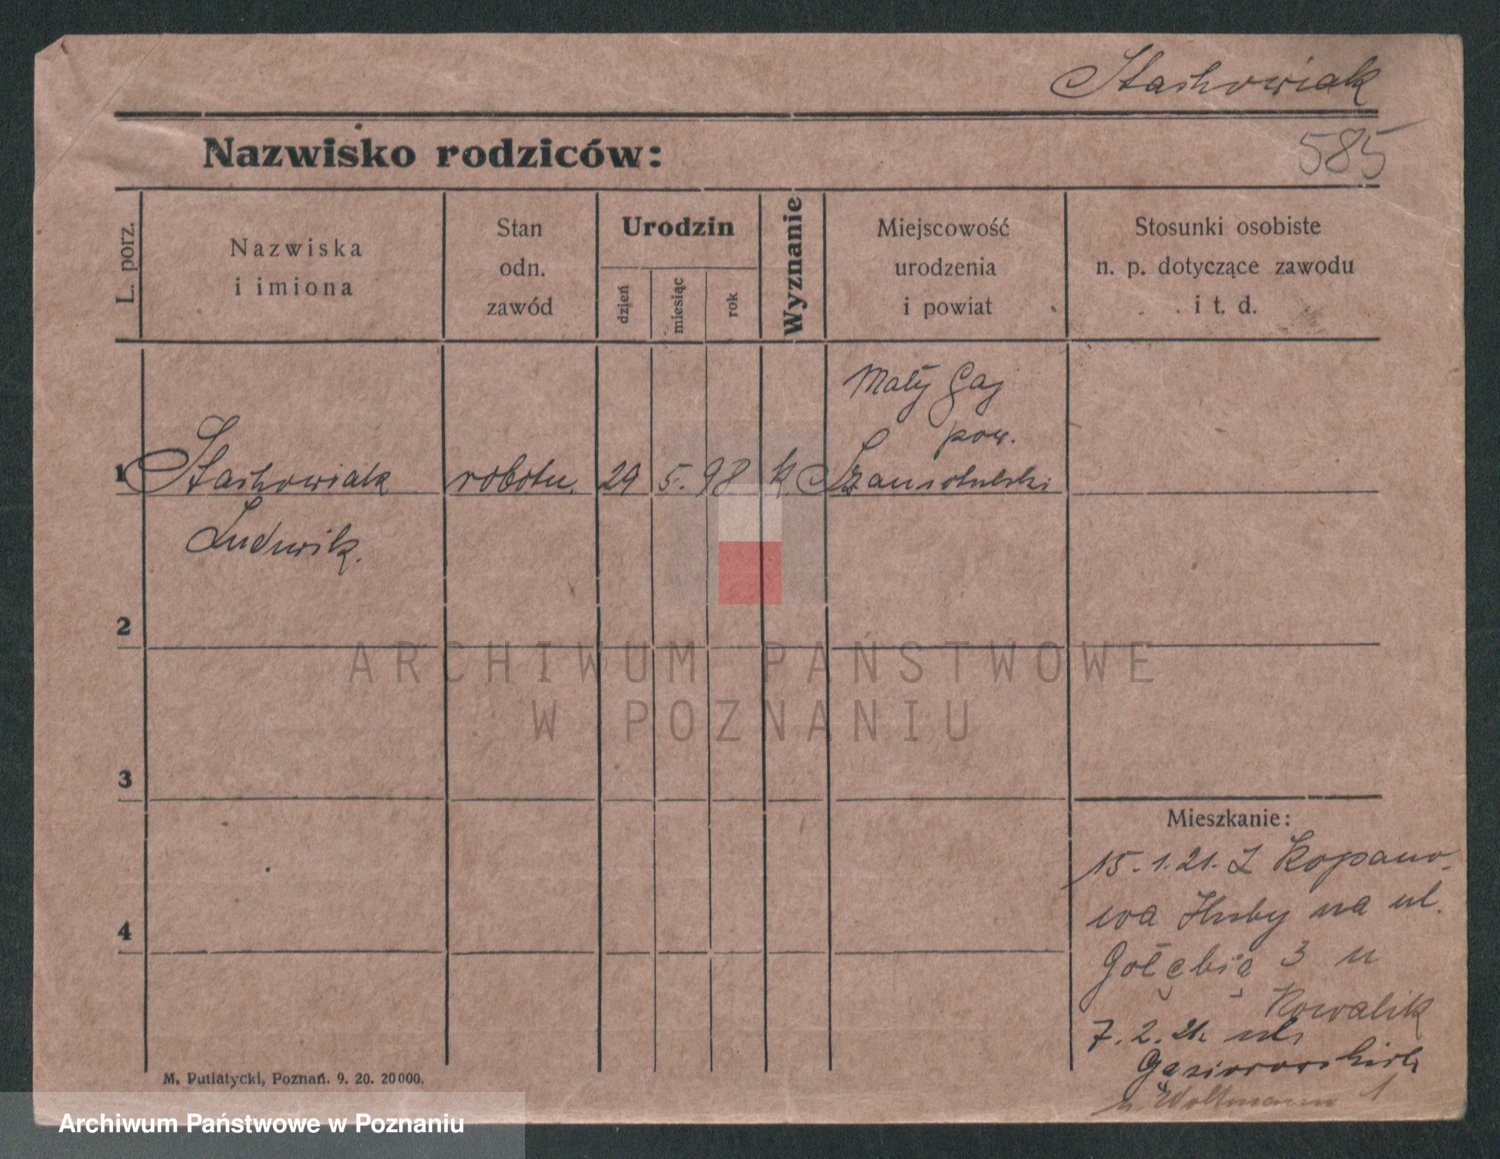 Stachowiak
Nazwisko rodziców:
585
L. porz.
Nazwiska
i imiona
Stan
odn.
zawód
Urodzin
dzień
miesiąc
rok
Wyznanie
Miejscowość
urodzenia
i powiat
Stosunki osobiste
n. p. dotyczące zawodu
i t. d.
Mały Gaj
pow.
1 Stachowiak robotn. 29 5. 98 k Szamotulski
Ludwik.
2
ARCHIWUM PAŃSTWOWE
W POZNANIU
3
Mieszkanie:
15.1.21. Z Kopano-
wa Huby na ul.
4
Gołębią 3 u
Kowalik
7. 2. 21. ul.
Gąsiorowskich
u. 1
M. Putiatycki, Poznań. 9. 20. 20000.
Archiwum Państwowe w Poznaniu